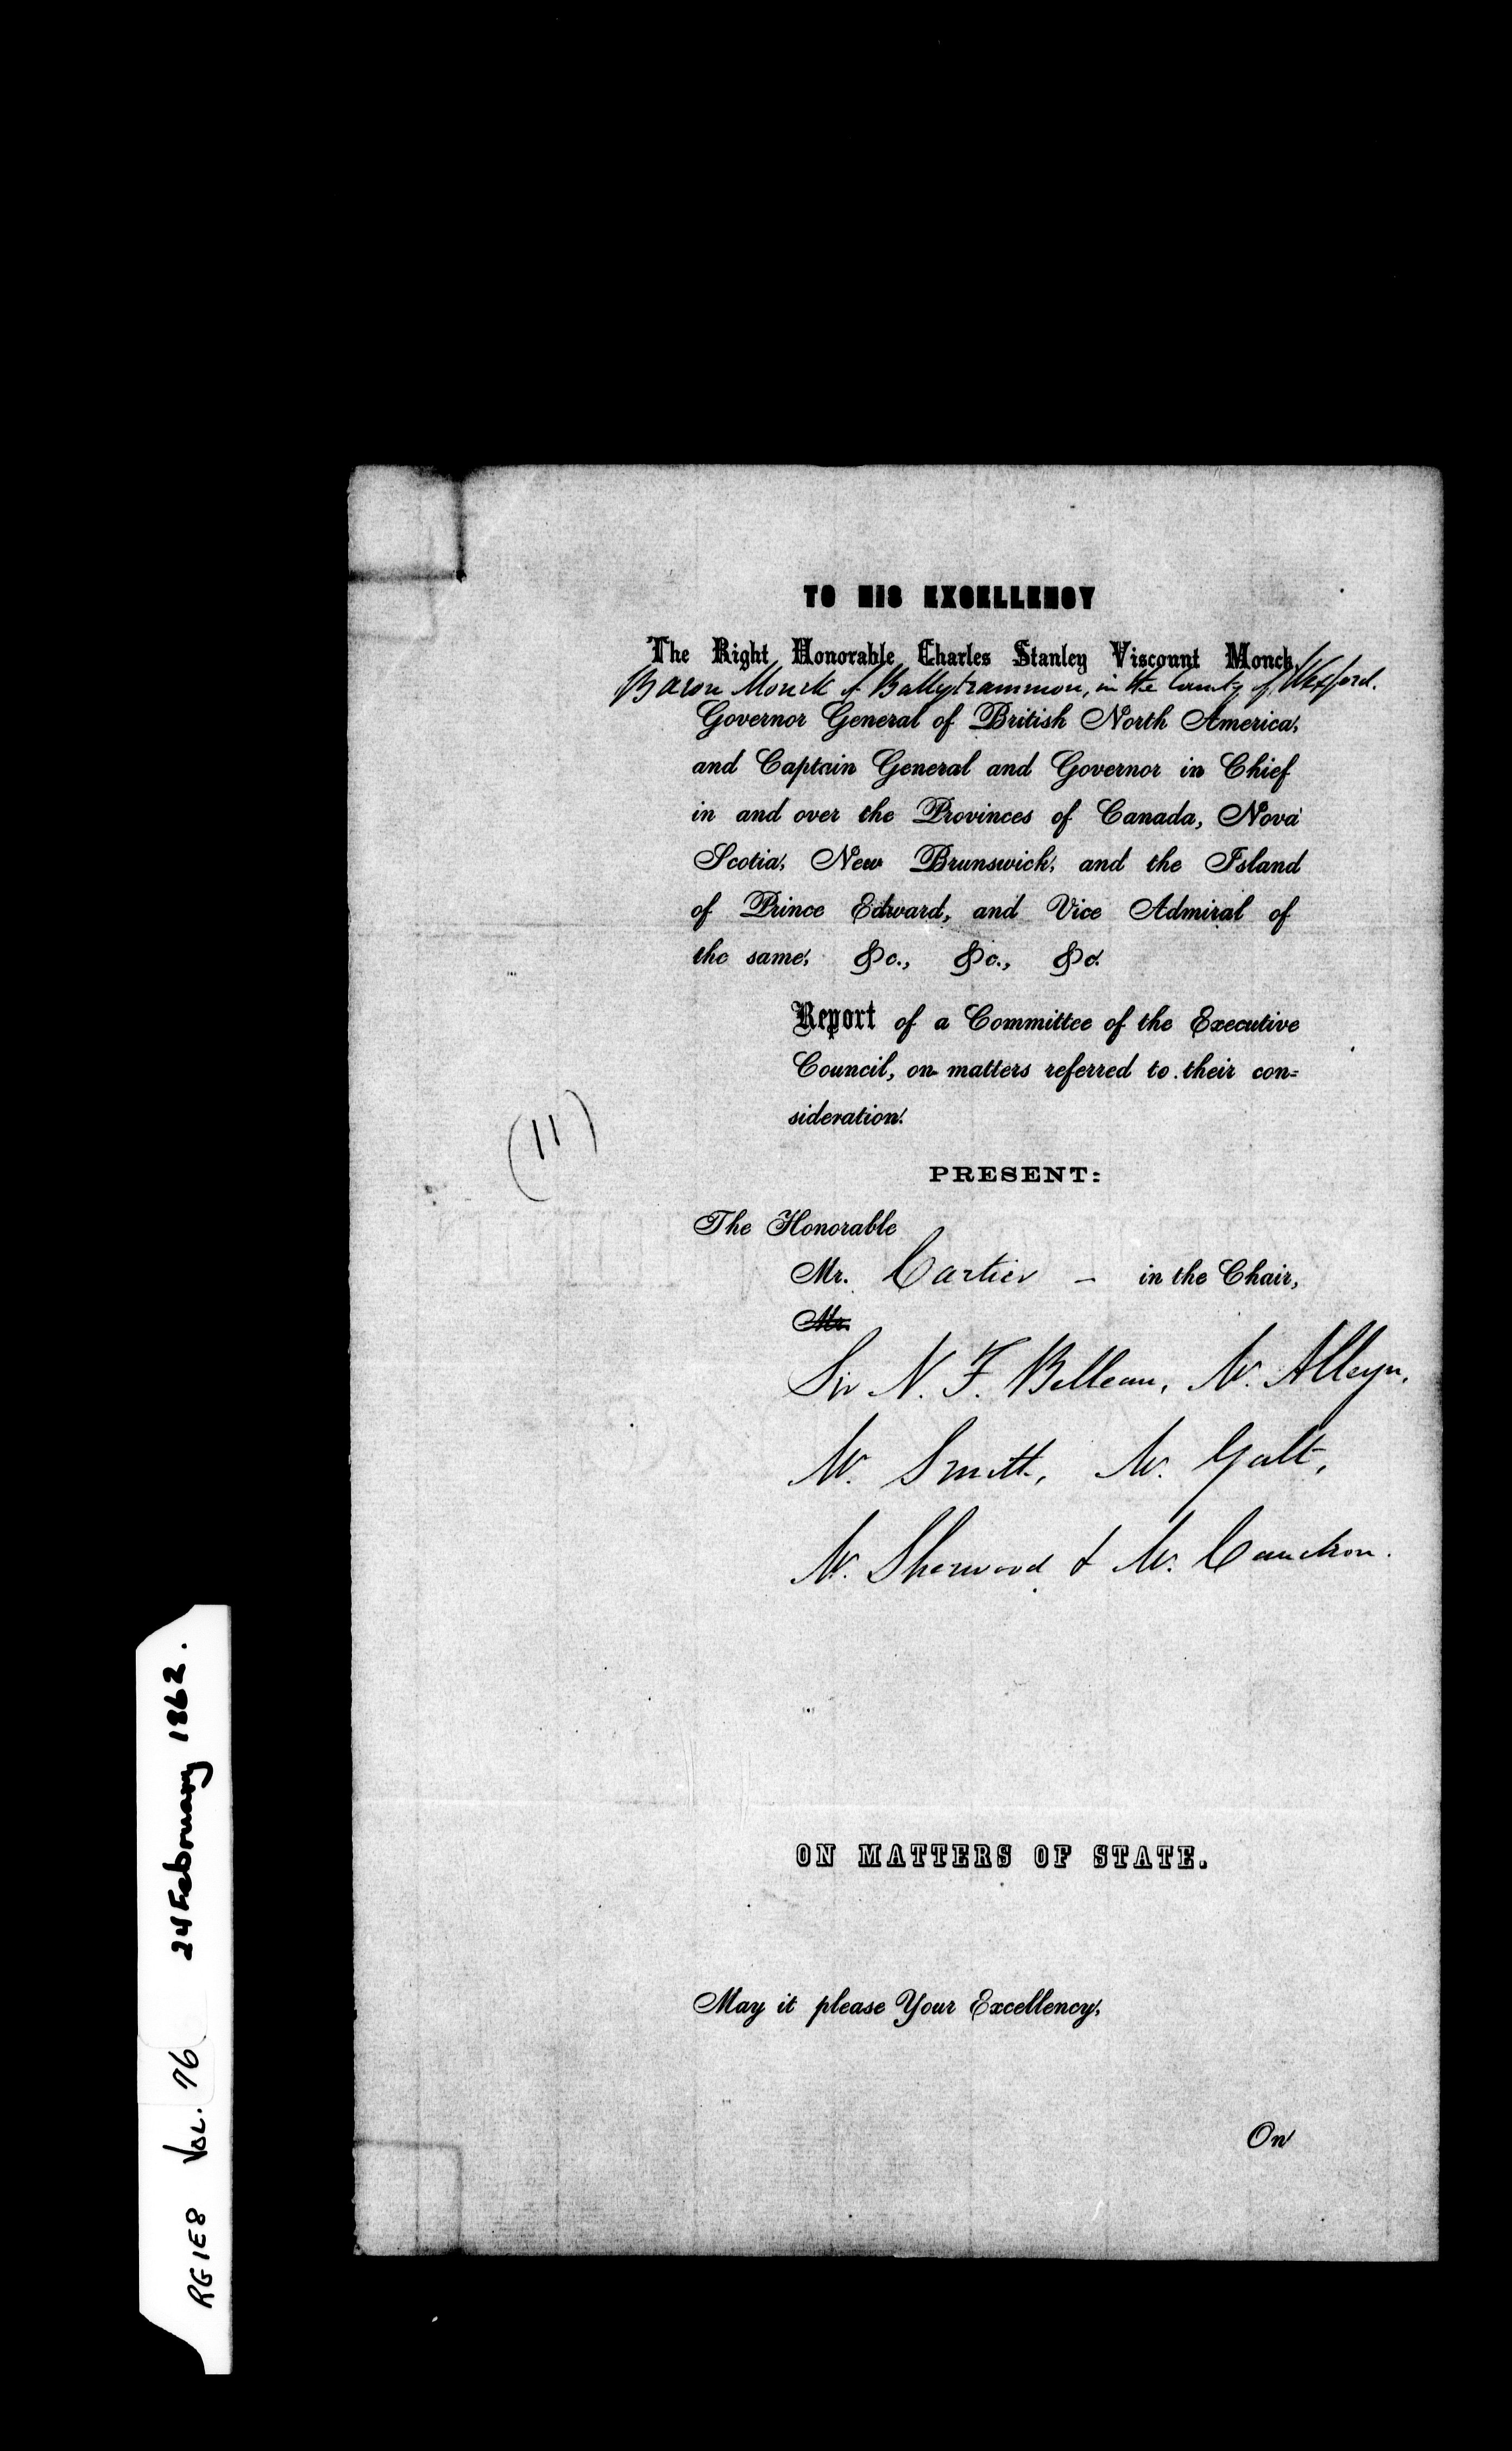 TO HIS EXCELLENCY
The Right Honorable Charles Stanley Viscount Monck,
Baron Monck of Ballytrammon, in the County of Wexford.
Governor General of British North America,
and Captain General and Governor in Chief
in and over the Provinces of Canada, Nova
Scotia, New Brunswick, and the Island
of Prince Edward, and Vice Admiral of
the same, &c., &c., &c.
Report of a Committee of the Executive
Council, on matters referred to their con=
sideration.
(11)
PRESENT:
The Honorable
Mr. Cartier - in the Chair,
Mr.
Sir N. F. Belleau, Mr. Alleyn,
Mr. Smith, Mr. Galt,
Mr. Sherwood & Mr. Cauchon.
ON MATTERS OF STATE.
May it please Your Excellency,
On
RG1E8 VOL. 76 24 February 1862.